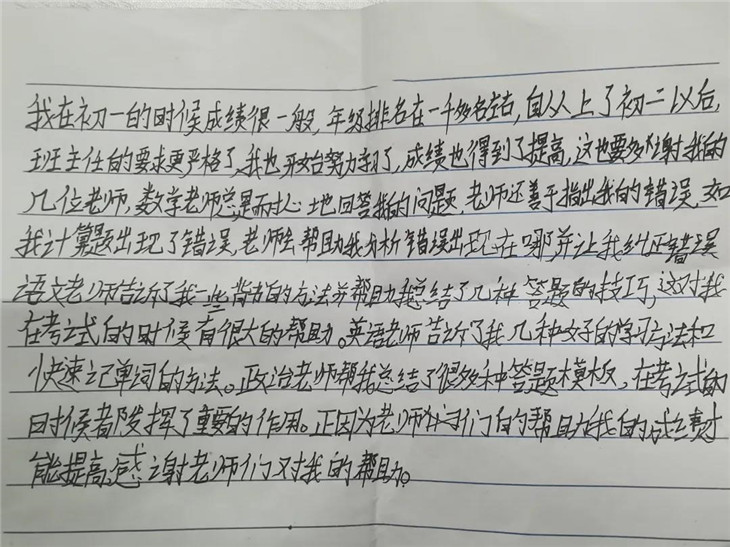 我在初一的时候成绩很一般,年级排名在一千多名左右,自从上了初二以后,
班主任的要求更严格了,我也开始努力学习了,成绩也得到了提高,这也要多谢我的
几位老师,数学老师总是耐心地回答我的问题,老师还善于指出我的错误,如
我计算题出现了错误,老师会帮助我分析错误出现在哪并让我纠正错误
语文老师告诉了我一些背书的方法并帮助我总结了几种答题的技巧,这对我
在考试的时候有很大的帮助。英语老师告诉了我几种好的学习方法和
快速记单词的方法。政治老师帮我总结了很多种答题模板,在考试的
时候都发挥了重要的作用。正因为老师们的帮助我的成绩才
能提高,感谢老师们对我的帮助。